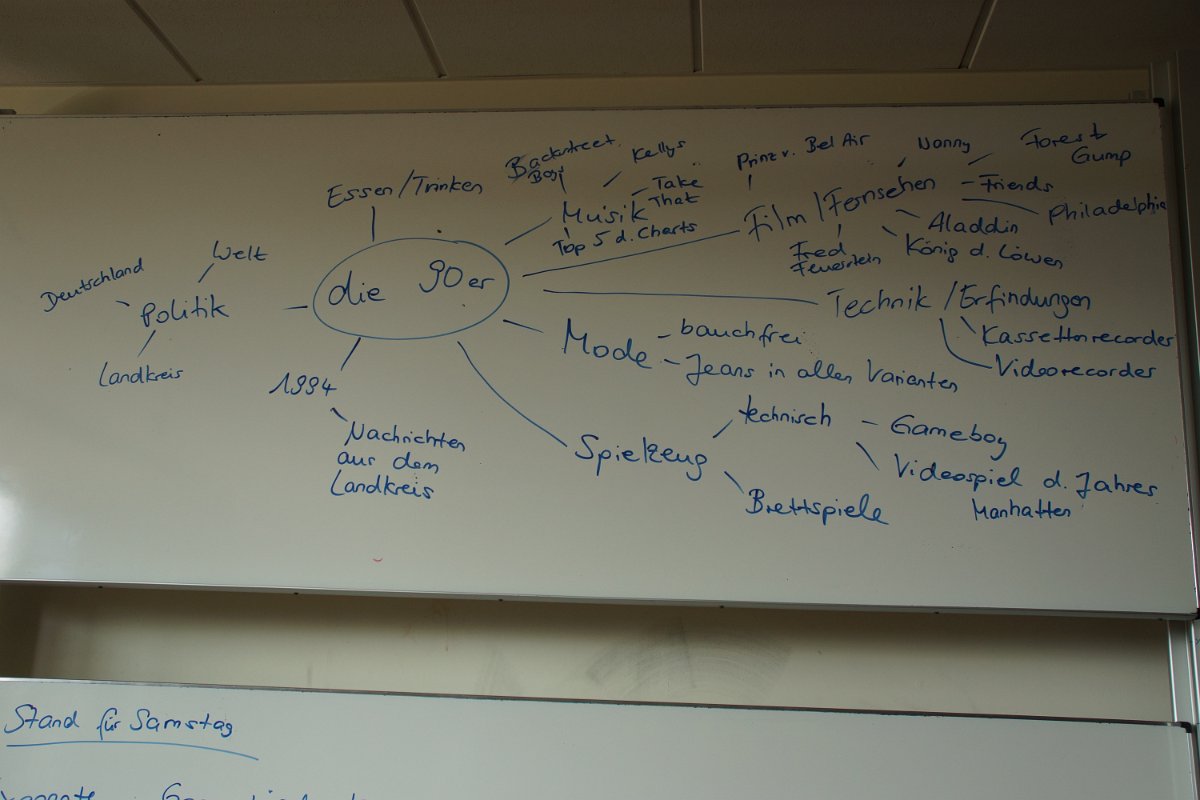 die 90er
Essen/Trinken
Musik
Backstreet
Boys
Kellys
Take
That
Top 5 d. Charts
Film/Fernsehen
Prinz v. Bel Air
Nanny
Forest
Gump
Friends
Philadelphia
Aladdin
König d. Löwen
Fred
Feuerstein
Technik/Erfindungen
Kassettenrecorder
Videorecorder
Mode
- bauchfrei
- Jeans in allen Varianten
Spielzeug
technisch
- Gameboy
Videospiel d. Jahres
Manhatten
Brettspiele
1994
Nachrichten
aus dem
Landkreis
Politik
Welt
Deutschland
Landkreis
Stand für Samstag